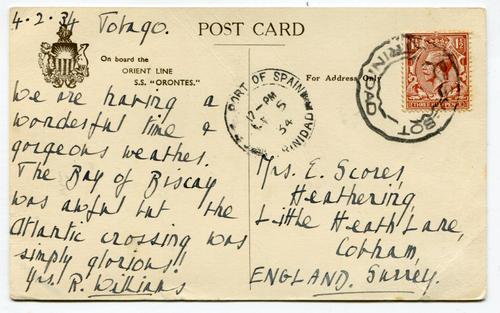 4.2.34 Tobago.
POST CARD
On board the
ORIENT LINE
S.S. "ORONTES."
For Address Only
PORT OF SPAIN
12-PM
5
34
TRINIDAD
THREE HALFPENCE
We are having a
wonderful time &
gorgeous weather.
The Bay of Biscay
was awful but the
Atlantic crossing was
simply glorious!!
Yrs. R. Williams
Mrs. E. Scores,
Heathering,
Little Heath Lane,
Cobham,
ENGLAND. Surrey.